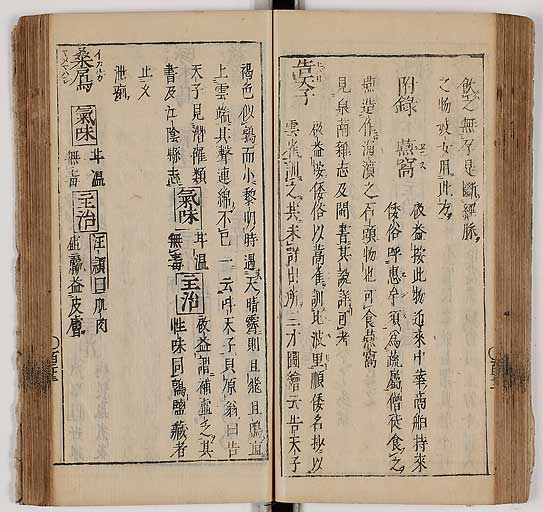 飲之無孕是斷經脈
之物或女用此方
附錄 燕窩 啟益按此物近來中華商舶持來
倭俗呼惠牟須為蔬屬僧徒食之
燕造作海濵之石頭物也可食燕窩
見泉南雜志及閩書其說詳可考
告天子 啟益按倭俗以蒿雀訓比波里順倭名抄以
雲雀訓之其未詳出所三才圖繪云告天子
褐色似鶉而小黎明時遇天晴霽則且飛且鳴直
上雲端其聲連綿不已一云叫天子貝原翁曰告
天子見潛確類
書及江陰縣志
氣味 甘温
無毒
主治 啟益謂補虛乏其
性味同鶉鹽藏者
止久
泄痢
桑鳲
イカルカ
マメマハシ
氣味 甘温
無毒
主治 汪頴曰肌肉
虛羸益皮膚